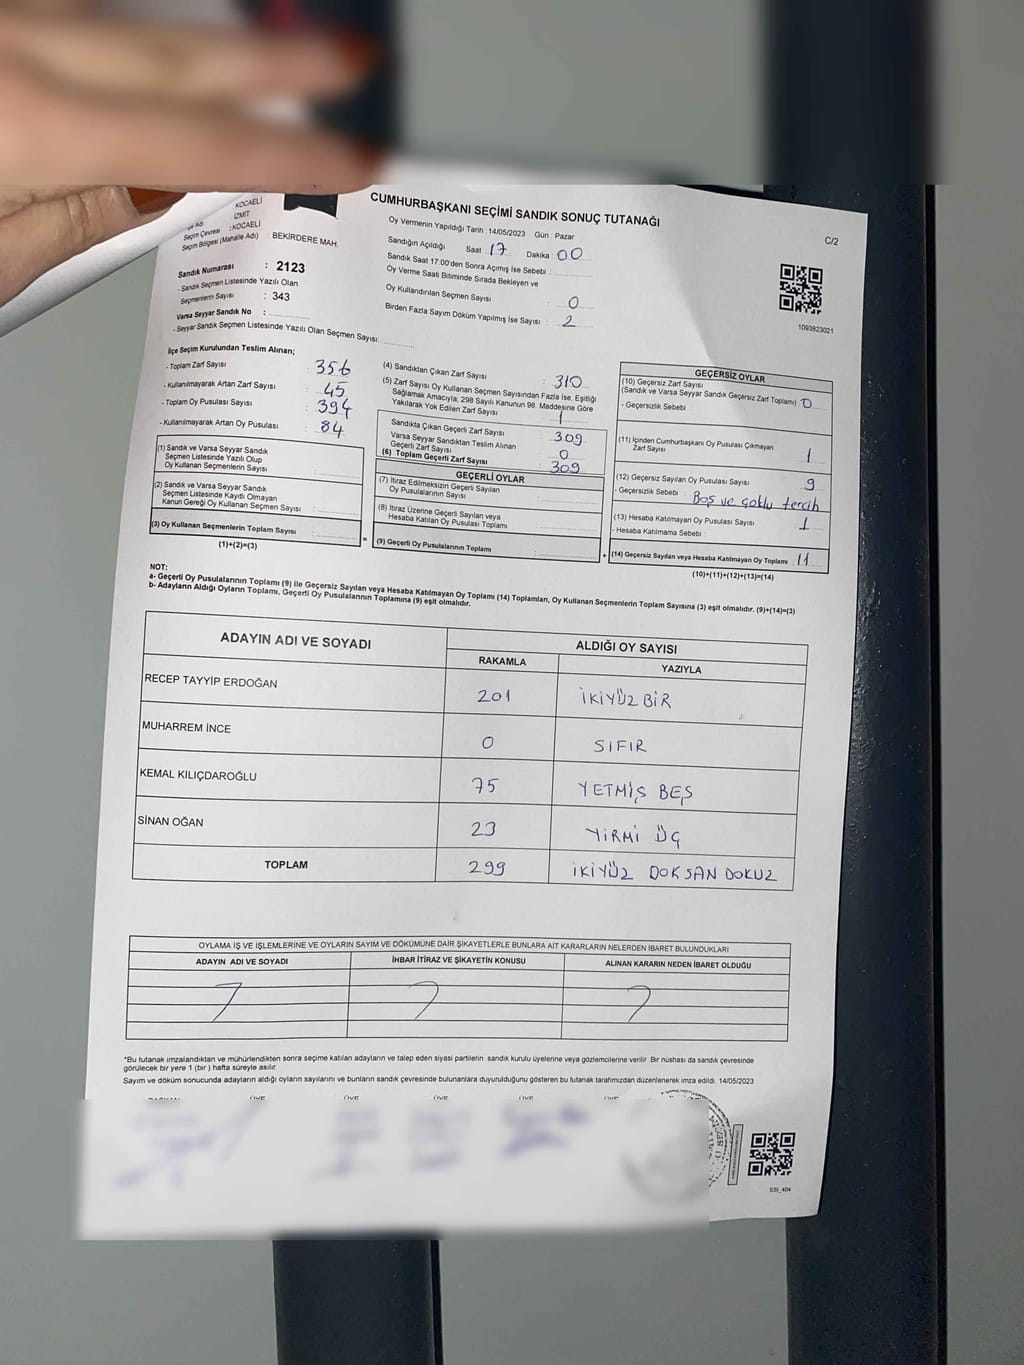 CUMHURBAŞKANI SEÇİMİ SANDIK SONUÇ TUTANAĞI
C/2
KOCAELİ
İZMİT
Seçim Çevresi : KOCAELİ
Seçim Bölgesi (Mahalle Adı) : BEKİRDERE MAH.
Sandık Numarası : 2123
- Sandık Seçmen Listesinde Yazılı Olan
Seçmenlerin Sayısı : 343
Varsa Seyyar Sandık No :
- Seyyar Sandık Seçmen Listesinde Yazılı Olan Seçmen Sayısı:
Oy Vermenin Yapıldığı Tarih : 14/05/2023 Gün : Pazar
Sandığın Açıldığı Saat : 17 Dakika : 00
Sandık Saat 17:00'den Sonra Açımış İse Sebebi :
Oy Verme Saati Bitiminde Sırada Bekleyen ve
Oy Kullandırılan Seçmen Sayısı : 0
Birden Fazla Sayım Döküm Yapılmış İse Sayısı : 2
1093823021
İlçe Seçim Kurulundan Teslim Alınan;
- Toplam Zarf Sayısı : 356
- Kullanılmayarak Artan Zarf Sayısı : 45
- Toplam Oy Pusulası Sayısı : 394
- Kullanılmayarak Artan Oy Pusulası : 84
(1) Sandık ve Varsa Seyyar Sandık
Seçmen Listesinde Yazılı Olup
Oy Kullanan Seçmenlerin Sayısı :
(2) Sandık ve Varsa Seyyar Sandık
Seçmen Listesinde Kayıtlı Olmayan
Kanun Gereği Oy Kullanan Seçmen Sayısı :
(3) Oy Kullanan Seçmenlerin Toplam Sayısı :
(1)+(2)=(3)
(4) Sandıktan Çıkan Zarf Sayısı : 310
(5) Zarf Sayısı Oy Kullanan Seçmen Sayısından Fazla İse, Eşitliği
Sağlamak Amacıyla, 298 Sayılı Kanunun 98. Maddesine Göre
Yakılarak Yok Edilen Zarf Sayısı : 1
Sandıkta Çıkan Geçerli Zarf Sayısı : 309
Varsa Seyyar Sandıktan Teslim Alınan
Geçerli Zarf Sayısı : 0
(6) Toplam Geçerli Zarf Sayısı : 309
GEÇERLİ OYLAR
(7) İtiraz Edilmeksizin Geçerli Sayılan
Oy Pusulalarının Sayısı :
(8) İtiraz Üzerine Geçerli Sayılan veya
Hesaba Katılan Oy Pusulası Toplamı :
= (9) Geçerli Oy Pusulalarının Toplamı :
GEÇERSİZ OYLAR
(10) Geçersiz Zarf Sayısı
(Sandık ve Varsa Seyyar Sandık Geçersiz Zarf Toplamı) : 0
- Geçersizlik Sebebi :
(11) İçinden Cumhurbaşkanı Oy Pusulası Çıkmayan
Zarf Sayısı : 1
(12) Geçersiz Sayılan Oy Pusulası Sayısı : 9
- Geçersizlik Sebebi : Boş ve çoklu tercih
(13) Hesaba Katılmayan Oy Pusulası Sayısı : 1
- Hesaba Katılmama Sebebi :
+ (14) Geçersiz Sayılan veya Hesaba Katılmayan Oy Toplamı : 11
(10)+(11)+(12)+(13)=(14)
NOT:
a- Geçerli Oy Pusulalarının Toplamı (9) ile Geçersiz Sayılan veya Hesaba Katılmayan Oy Toplamı (14) Toplamları, Oy Kullanan Seçmenlerin Toplam Sayısına (3) eşit olmalıdır. (9)+(14)=(3)
b- Adayların Aldığı Oyların Toplamı, Geçerli Oy Pusulalarının Toplamına (9) eşit olmalıdır.
ADAYIN ADI VE SOYADI ALDIĞI OY SAYISI
RAKAMLA YAZIYLA
RECEP TAYYİP ERDOĞAN 201 İKİYÜZ BİR
MUHARREM İNCE 0 SIFIR
KEMAL KILIÇDAROĞLU 75 YETMİŞ BEŞ
SİNAN OĞAN 23 YİRMİ ÜÇ
TOPLAM 299 İKİYÜZ DOKSAN DOKUZ
OYLAMA İŞ VE İŞLEMLERİNE VE OYLARIN SAYIM VE DÖKÜMÜNE DAİR ŞİKAYETLERLE BUNLARA AİT KARARLARIN NELERDEN İBARET BULUNDUKLARI
ADAYIN ADI VE SOYADI İHBAR İTİRAZ VE ŞİKAYETİN KONUSU ALINAN KARARIN NEDEN İBARET OLDUĞU
*Bu tutanak imzalandıktan ve mühürlendikten sonra seçime katılan adayların ve talep eden siyasi partilerin sandık kurulu üyelerine veya gözlemcilerine verilir. Bir nüshası da sandık çevresinde
görülecek bir yere 1 (bir) hafta süreyle asılır.
Sayım ve döküm sonucunda adayların aldığı oyların sayılarını ve bunların sandık çevresinde bulunanlara duyurulduğunu gösteren bu tutanak tarafımızdan düzenlenerek imza edildi. 14/05/2023
BAŞKAN ÜYE ÜYE ÜYE ÜYE ÜYE